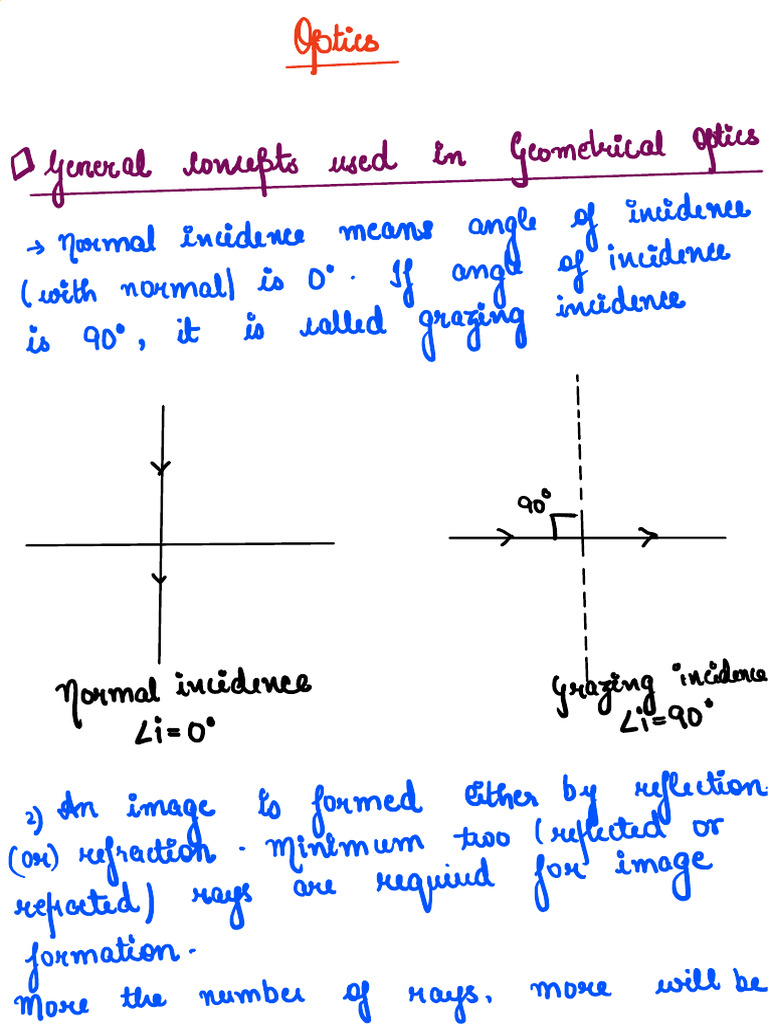 Optics
General concepts used in Geometrical Optics
→ Normal incidence means angle of incidence
(with normal) is 0°. If angle of incidence
is 90°, it is called grazing incidence
90°
Normal incidence
∠i=0°
Grazing incidence
∠i=90°
2) An image is formed either by reflection
(or) refraction. Minimum two (reflected or
refracted) rays are required for image
formation.
More the number of rays, more will be